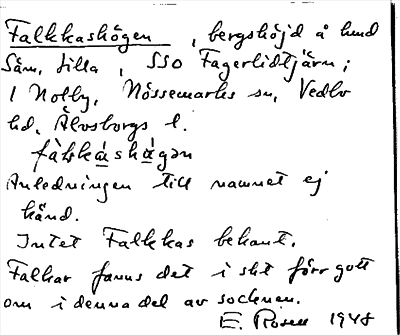 Falkkashögen, bergshöjd å lund
Säm, Lilla, SSO Fagerlidtjärn;
i Nolby, Nössemarks sn, Vedbo
hd, Älvsborgs l.
fàlkkáshǻgən
Anledningen till namnet ej
känd.
Intet Falkkas bekant.
Falkar fanns det i skt förr gott
om i denna del av socknen.
E. Rosell 1948